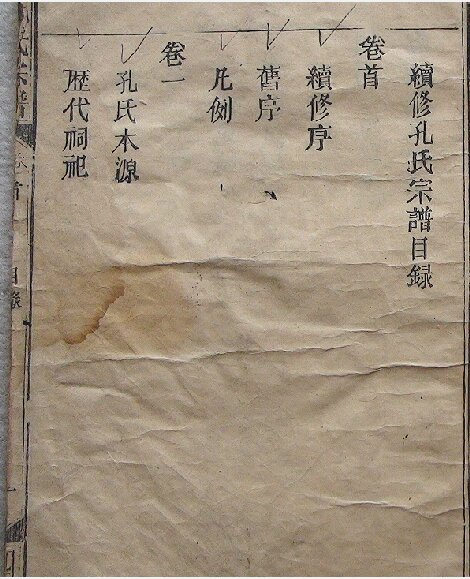 續修孔氏宗譜目録
卷首
續修序
舊序
凡例
卷一
孔氏本源
歷代祠祀
氏宗譜
卷首
目録